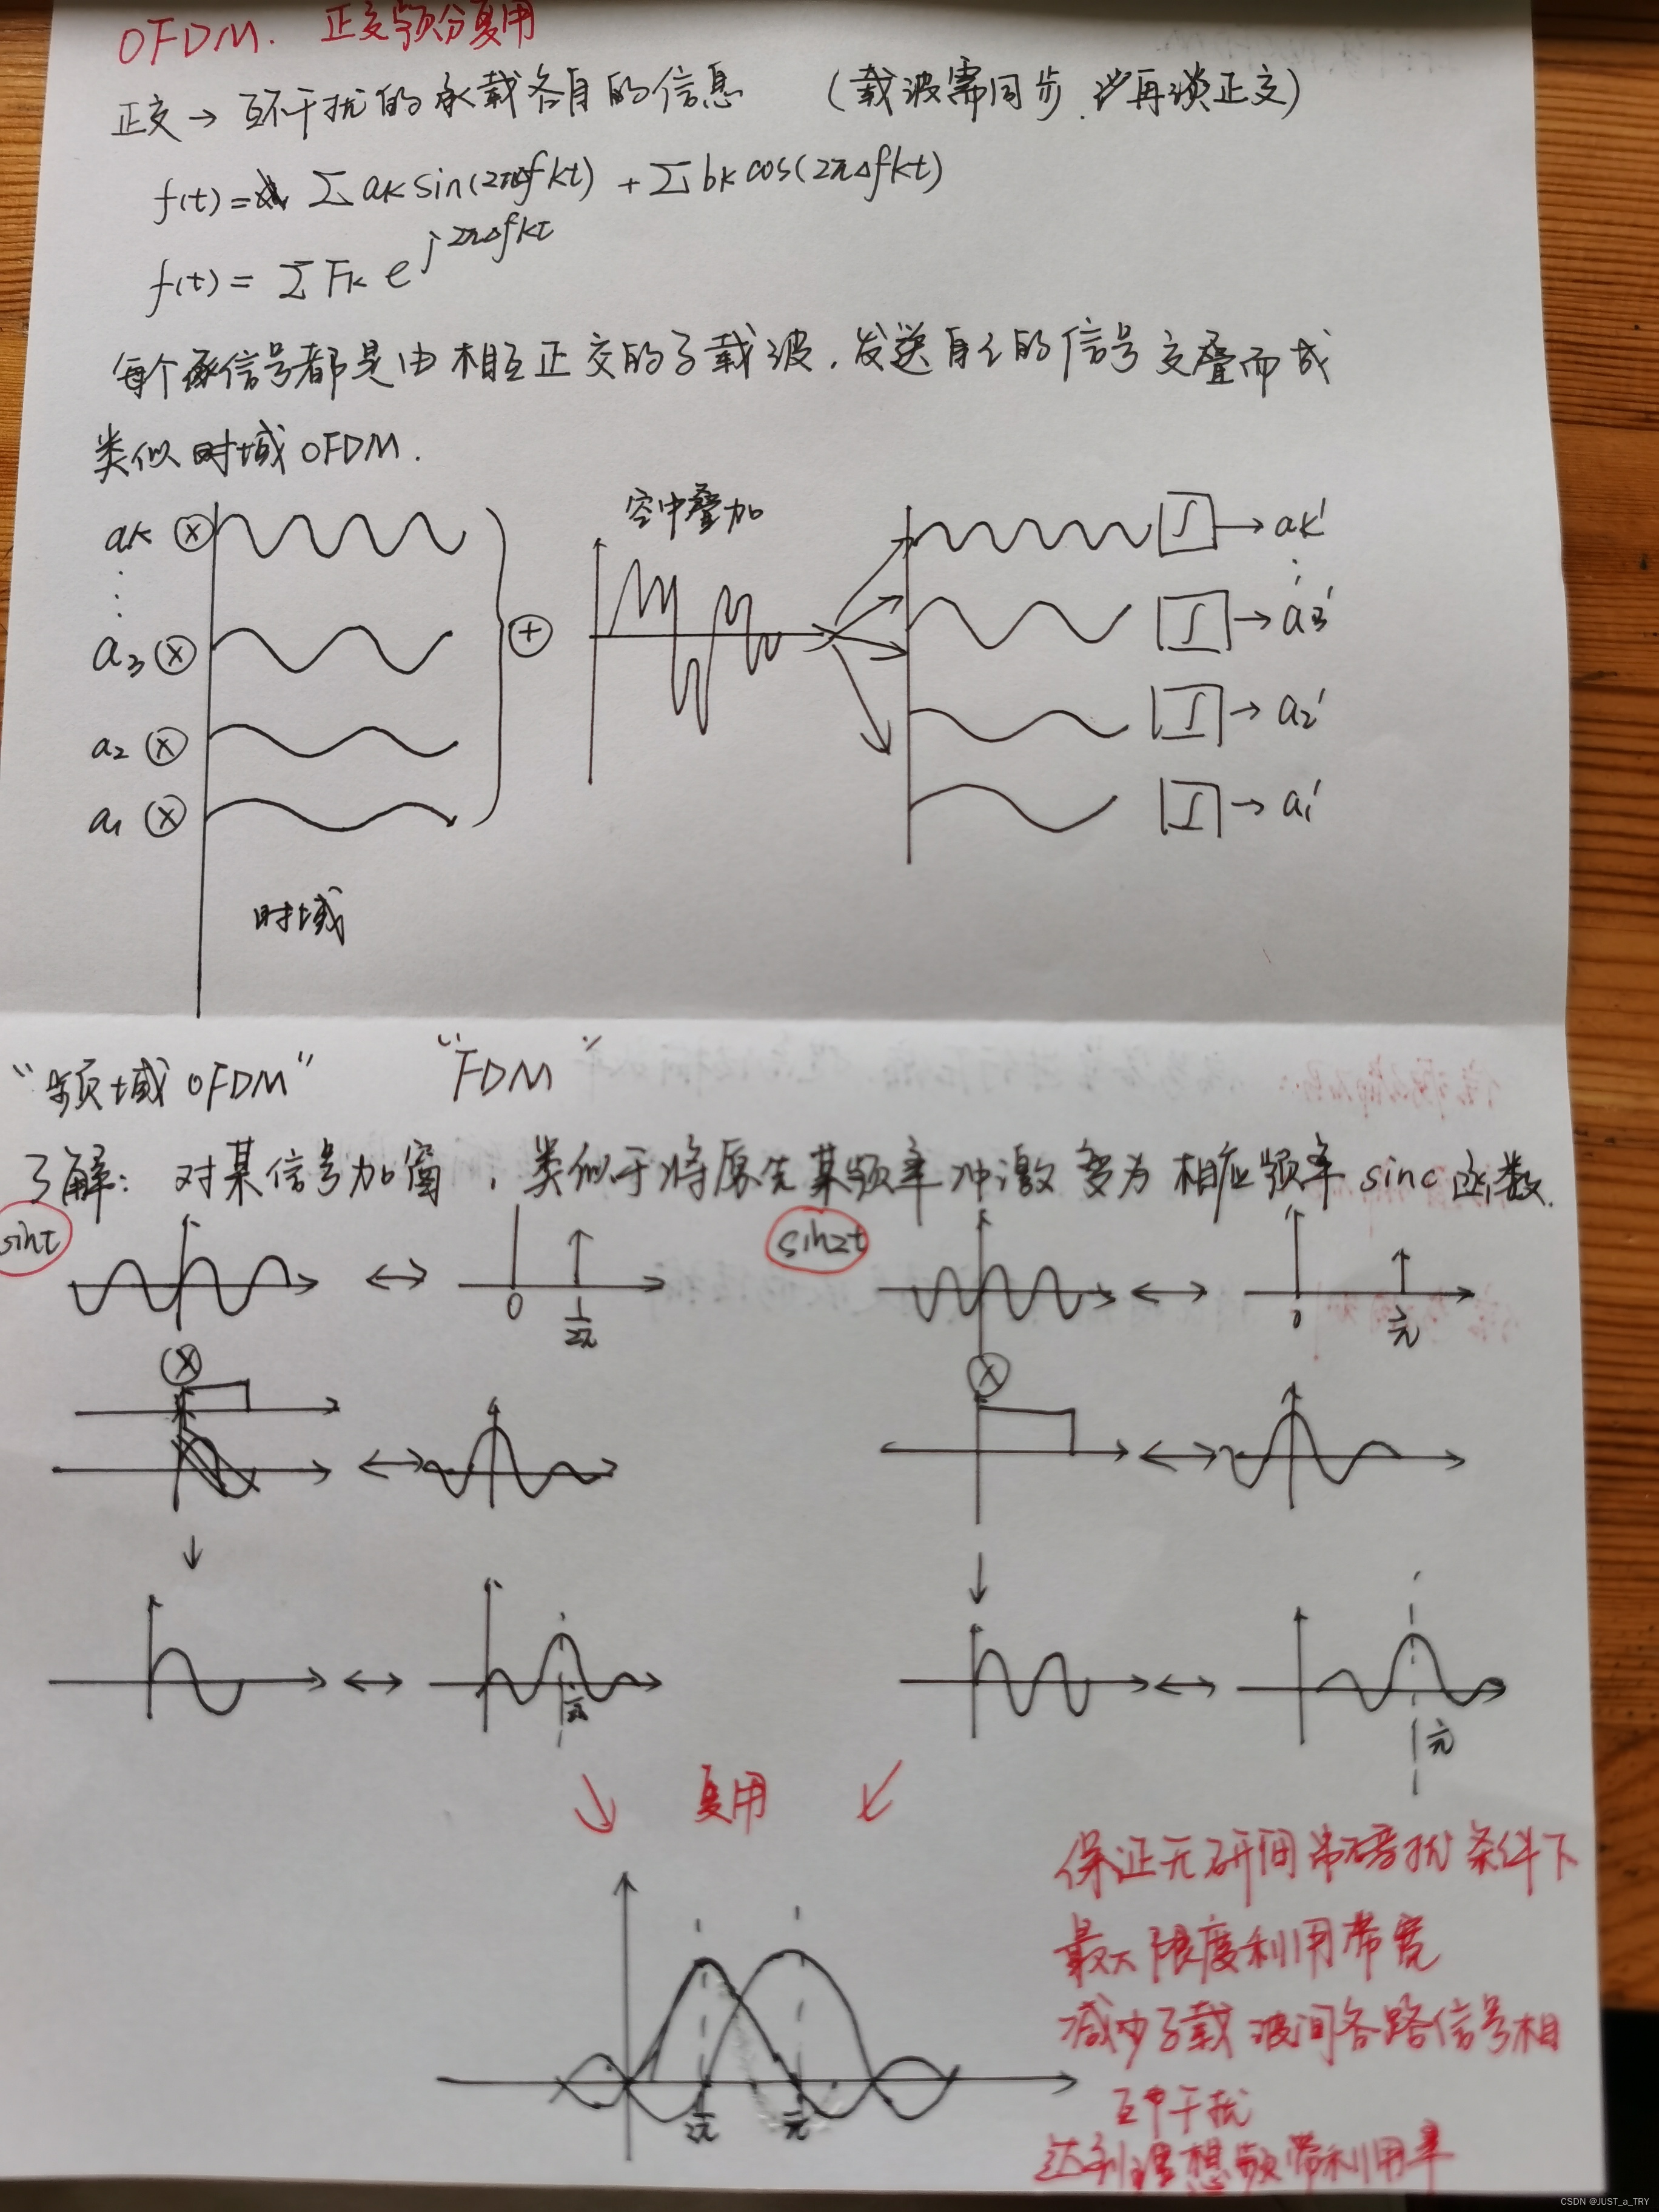 OFDM. 正交频分复用
正交→互不干扰的承载各自的信息 (载波需同步. 再谈正交)
f(t)= Σ aK sin(2πΔfkt) + Σ bK cos(2πΔfkt)
f(t) = Σ FK e^j2πΔfkt
每个信号都是由相互正交的子载波,发送自己的信号交叠而成
类似时域OFDM.
空中叠加
aK ⊗ ∫ → aK'
a3 ⊗ ⊕ ∫ → a3'
a2 ⊗ ∫ → a2'
a1 ⊗ ∫ → a1'
时域
“频域OFDM” “FDM”
了解: 对某信号加窗, 类似于将原先某频率冲激变为相应频率sinc函数.
sint sin2t
0 1/2π 0 1/π
⊗ ⊗
1/π
复用
保证无码间串扰条件下
最大限度利用带宽
减少子载波间各路信号相
互干扰
达到理想频带利用率
1/2π 1/π
CSDN @JUST_a_TRY